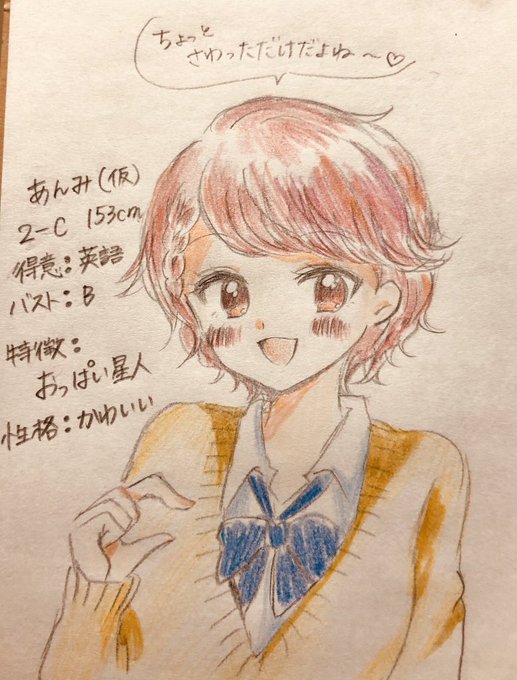 ちょっと
さわっただけだよね〜♡
あんみ(仮)
2-C 153cm
得意:英語
バスト:B
特徴:
おっぱい星人
性格:かわいい